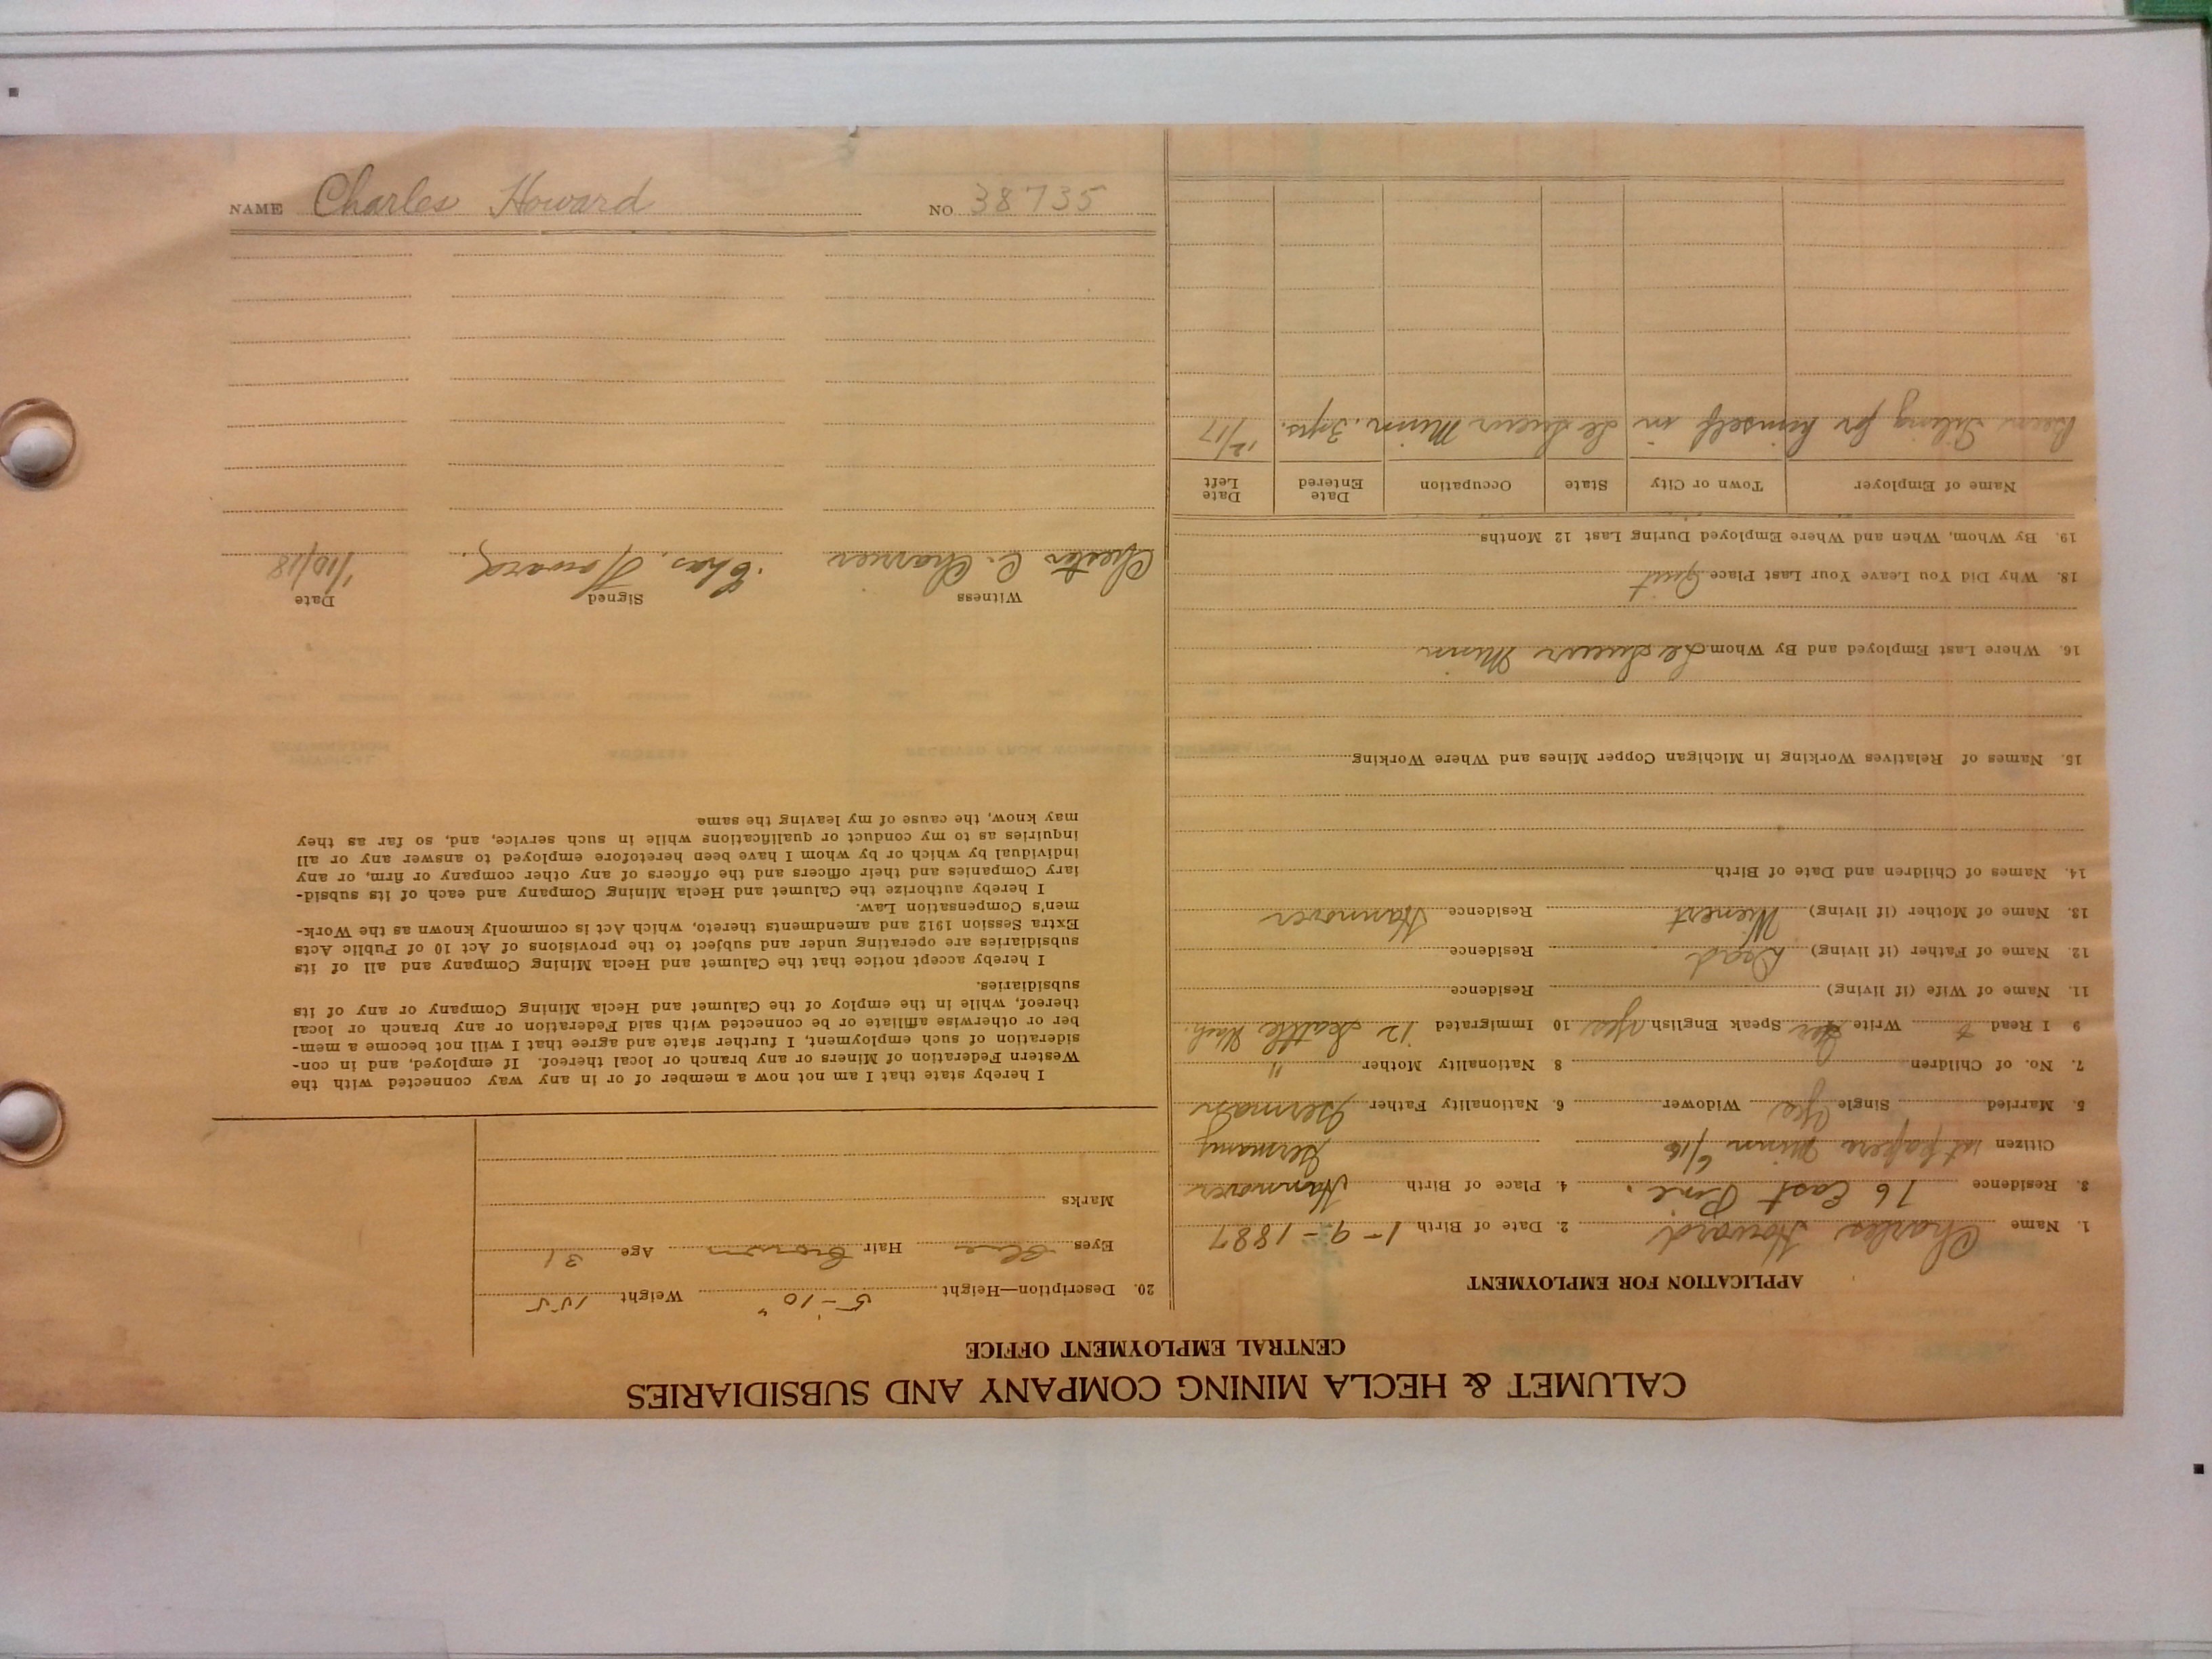 CALUMET & HECLA MINING COMPANY AND SUBSIDIARIES
CENTRAL EMPLOYMENT OFFICE
APPLICATION FOR EMPLOYMENT
1. Name Charles Howard 2. Date of Birth 1-9-1887
3. Residence 76 East Pine. 4. Place of Birth Hannover
Citizen 1st papers Minn 6/16 Germany
5. Married Single Yes Widower 6. Nationality Father German
7. No. of Children 8 Nationality Mother "
9 I Read & Write Ger Speak English yes 10 Immigrated '12 Seattle Wash.
11. Name of Wife (if living) Residence
12. Name of Father (if living) Dead Residence
13. Name of Mother (if living) Wienert Residence Hannover
14. Names of Children and Date of Birth
15. Names of Relatives Working in Michigan Copper Mines and Where Working
16. Where Last Employed and By Whom Le Sueur Minn
18. Why Did You Leave Your Last Place Quit
19. By Whom, When and Where Employed During Last 12 Months
Name of Employer Town or City State Occupation Date Entered Date Left
Been for himself in Le Sueur Minn. 3 yrs. 12/17
20. Description—Height 5'-10" Weight 155
Eyes Blue Hair Brown Age 31
Marks
I hereby state that I am not now a member of or in any way connected with the
Western Federation of Miners or any branch or local thereof. If employed, and in con-
sideration of such employment, I further state and agree that I will not become a mem-
ber or otherwise affiliate or be connected with said Federation or any branch or local
thereof, while in the employ of the Calumet and Hecla Mining Company or any of its
subsidiaries.
I hereby accept notice that the Calumet and Hecla Mining Company and all of its
subsidiaries are operating under and subject to the provisions of Act 10 of Public Acts
Extra Session 1912 and amendments thereto, which Act is commonly known as the Work-
men's Compensation Law.
I hereby authorize the Calumet and Hecla Mining Company and each of its subsid-
iary Companies and their officers and the officers of any other company or firm, or any
individual by which or by whom I have been heretofore employed to answer any or all
inquiries as to my conduct or qualifications while in such service, and, so far as they
may know, the cause of my leaving the same
Witness Signed Date
Chester C. Chas. Howard. 1/10/18
NAME Charles Howard NO 38735